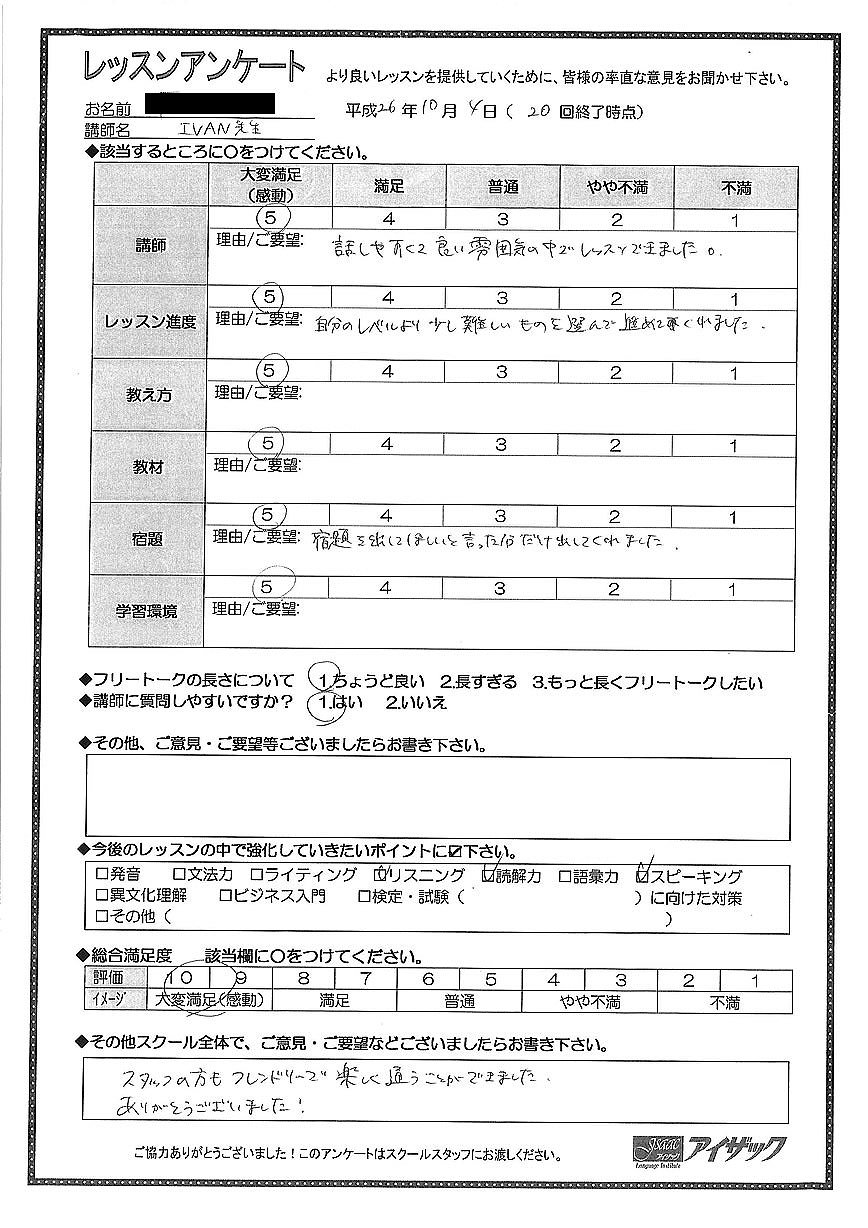 レッスンアンケート
より良いレッスンを提供していくために、皆様の率直な意見をお聞かせ下さい。
お名前
平成26年10月4日( 20 回終了時点)
講師名 IVAN先生
◆該当するところに〇をつけてください。
大変満足(感動) 満足 普通 やや不満 不満
講師 5 4 3 2 1
理由/ご要望: 話しやすくて良い雰囲気の中でレッスンできました。
レッスン進度 5 4 3 2 1
理由/ご要望: 自分のレベルより少し難しいものを選んで進めてくれました.
教え方 5 4 3 2 1
理由/ご要望:
教材 5 4 3 2 1
理由/ご要望:
宿題 5 4 3 2 1
理由/ご要望: 宿題を出してほしいと言った分だけ出してくれました.
学習環境 5 4 3 2 1
理由/ご要望:
◆フリートークの長さについて 1.ちょうど良い 2.長すぎる 3.もっと長くフリートークしたい
◆講師に質問しやすいですか? 1.はい 2.いいえ
◆その他、ご意見・ご要望等ございましたらお書き下さい。
◆今後のレッスンの中で強化していきたいポイントに☑下さい。
□発音 □文法力 □ライティング ☑リスニング ☑読解力 □語彙力 ☑スピーキング
□異文化理解 □ビジネス入門 □検定・試験( )に向けた対策
□その他( )
◆総合満足度 該当欄に〇をつけてください。
評価 10 9 8 7 6 5 4 3 2 1
ｲﾒｰｼﾞ 大変満足(感動) 満足 普通 やや不満 不満
◆その他スクール全体で、ご意見・ご要望などございましたらお書き下さい。
スタッフの方もフレンドリーで楽しく通うことができました.
ありがとうございました!
ご協力ありがとうございました!このアンケートはスクールスタッフにお渡しください。
ISAAC アイザック Language Institute アイザック